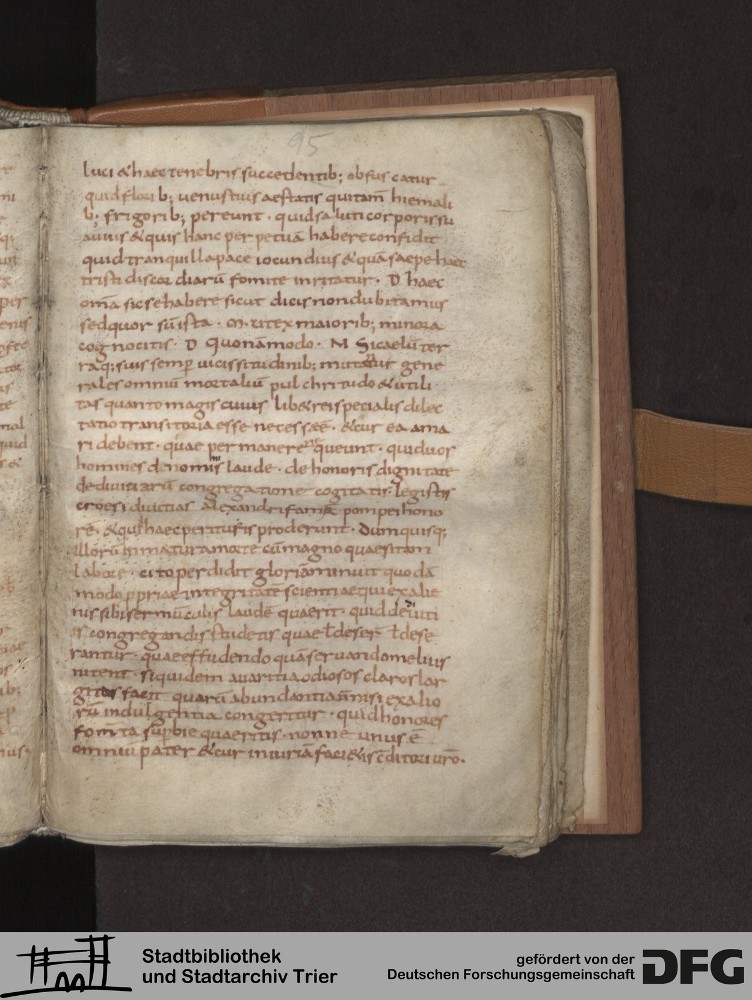 95
luci & haec tenebris succedentib; obfuscatur
quid florib; uenustius aestatis qui tam hiemali
b; frigorib; pereunt · quid salute corporis su
auius & quis hanc perpetuā habere confidit
quid tranquilla pace iocundius & quā saepe haec
tristi discordiarū fomite inritatur · D haec
om̄a sic se habere sicut dicis non dubitamus
sed quor sū ista · M · ut ex maiorib; minora
cognoscatis · D Quonam modo · M Si caelū ter
raq; suis semp̄ uicissitudinib; mutatur gene
rales omniū mortaliū pulchritudo & utili
tas quanto magis cuius lib& rei specialis dilec
tatio transitoria esse necesse ē · & cur ea ama
ri debent · quae permanere nequeunt · quid uos
homines de nominis laude · de honoris dignitate
de diuitiarū congregatione cogitatis · legistis
croesi diuitias alexandri famā pompei hono
rē · & quid haec perituris proderunt · dum quisq;
illorū inmatura morte cū magno quaesitam
labore · cito perdidit gloriam
modo p̄priae integritatē scientiae qui ex alie
nis sibi sermunculis laudē quaerit · quid deuiti
is congregandis studetis quae ł deser ł dese
rantur · quae effundendo quā seruando melius
nitent · siquidem auaritia odiosos claros lar
gitas facit quarū abundantia n̄ nisi ex alio
rū indulgentia congeritur · quid honores
fomita sup̄bie quaeritis · nonne unus ē
omniū pater & cur iniuriā faci&is c̄ditori ur̄o ·
Stadtbibliothek
und Stadtarchiv Trier
gefördert von der
Deutschen Forschungsgemeinschaft
DFG